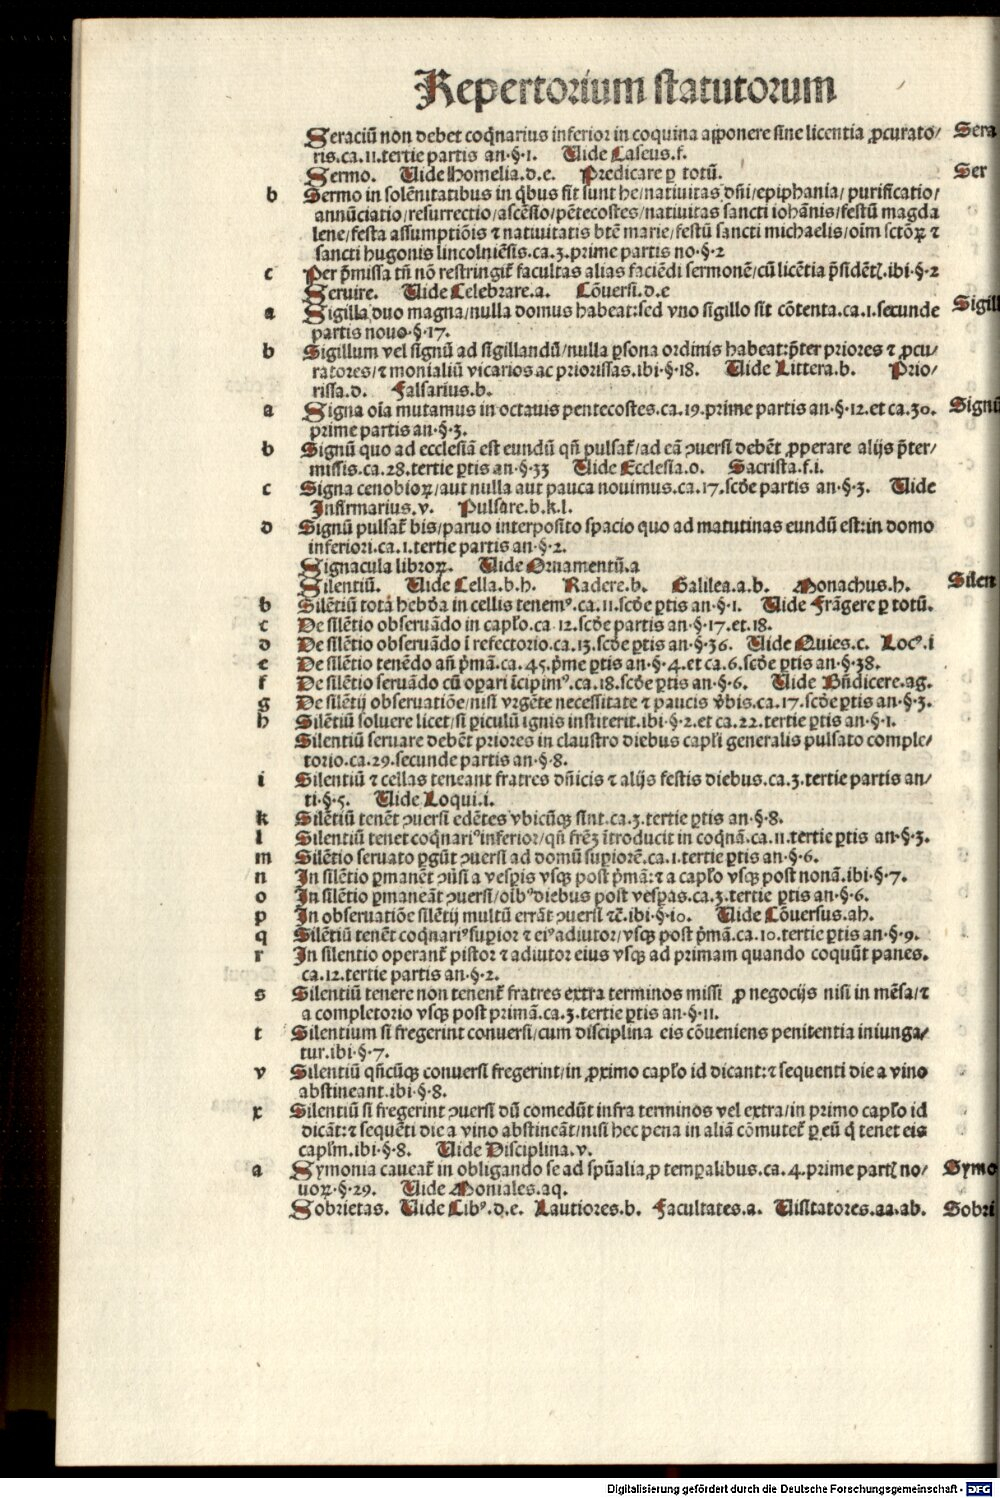 Repertorium statutorum
Seraciū non debet coqnarius inferior in coquina apponere sine licentia ꝓcurato/ Sera
ris.ca.11.tertie partis an·§·1. Uide Caseus.f.
Sermo. Uide Homelia.d.e. Predicare ꝑ totū. Ser
b Sermo in solēnitatibus in qbus fit sunt he/natiuitas dn̄i/epiphania/ purificatio/
annūciatio/resurrectio/ascēsio/pētecostes/natiuitas sancti iohānis/festū magda
lene/festa assumptiōis ⁊ natiuitatis btē marie/festū sancti michaelis/oīm sctōꝝ ⁊
sancti hugonis lincolniēsis.ca.3.prime partis no·§·2
c Per p̄missa tn̄ nō restringit̄ facultas alias faciēdi sermonē/cū licētia p̄sidētꝭ.ibi·§·2
Seruire. Uide Celebrare.a. Cōuersi.d.e
a Sigilla duo magna/nulla domus habeat:sed vno sigillo sit cōtenta.ca.1.secunde Sigill
partis nouo·§·17.
b Sigillum vel signū ad sigillandū/nulla ꝑsona ordinis habeat:p̄ter priores ⁊ ꝓcu/
ratores/⁊ monialiū vicarios ac priorissas.ibi·§·18. Uide Littera.b. Prio/
rissa.d. Falsarius.b.
a Signa oīa mutamus in octauis pentecostes.ca.19.prime partis an·§·12.et ca.30. Signū
prime partis an·§·3.
b Signū quo ad ecclesiā est eundū qn̄ pulsat̄/ad eā ꝯuersi debēt ꝓperare alijs p̄ter/
missis.ca.28.tertie ꝑtis an·§·33 Uide Ecclesia.o. Sacrista.f.i.
c Signa cenobioꝝ/aut nulla aut pauca nouimus.ca.17.scd̄e partis an·§·3. Uide
Infirmarius.v. Pulsare.b.k.l.
d Signū pulsat̄ bis/paruo interposito spacio quo ad matutinas eundū est:in domo
inferiori.ca.1.tertie partis an·§·2.
Signacula libroꝝ. Uide Ornamentū.a
Silentiū. Uide Cella.b.h. Radere.b. Galilea.a.b. Monachus.h. Silen
b Silētiū tota hebd̄a in cellis tenemꝰ.ca.11.scd̄e ꝑtis an·§·1. Uide Frāgere ꝑ totū.
c De silētio obseruādo in capło.ca 12.scd̄e partis an·§·17.et.18.
d De silētio obseruādo ī refectorio.ca.13.scd̄e ꝑtis an·§·36. Uide Quies.c. Locꝰ.i
e De silētio tenēdo an̄ p̄mā.ca.45.p̄me ꝑtis an·§·4.et ca.6.scd̄e ꝑtis an·§·38.
f De silētio seruādo cū oꝑari īcipimꝰ.ca.18.scd̄e ꝑtis an·§·6. Uide Bn̄dicere.ag.
g De silētij obseruatiōe/nisi vrgēte necessitate ⁊ paucis v̄bis.ca.17.scd̄e ꝑtis an·§·3.
h Silētiū soluere licet/si ꝑiculū ignis institerit.ibi·§·2.et ca.22.tertie ꝑtis an·§·1.
Silentiū seruare debēt priores in claustro diebus capłi generalis pulsato comple/
torio.ca.29.secunde partis an·§·8.
i Silentiū ⁊ cellas teneant fratres dn̄icis ⁊ alijs festis diebus.ca.3.tertie partis an/
ti·§·5. Uide Loqui.i.
k Silētiū tenēt ꝯuersi edētes vbicūqꝫ sint.ca.3.tertie ꝑtis an·§·8.
l Silentiū tenet coqnariꝰinferior/qn̄ frēꝫ ītroducit in coqnā.ca.11.tertie ꝑtis an·§·3.
m Silētio seruato ꝑgūt ꝯuersi ad domū suꝑiorē.ca.1.tertie ꝑtis an·§·6.
n In silētio ꝑmanēt ꝯūsi a vesꝑis vsqꝫ post p̄mā:⁊ a capło vsqꝫ post nonā.ibi·§·7.
o In silētio ꝑmaneāt ꝯuersi/oībꝰdiebus post vesꝑas.ca.3.tertie ꝑtis an·§·6.
p In obseruatiōe silētij multū errāt ꝯuersi ⁊c̄.ibi·§·10. Uide Cōuersus.ah.
q Silētiū tenēt coqnariꝰsuꝑior ⁊ eiꝰadiutor/vsqꝫ post p̄mā.ca.10.tertie ꝑtis an·§·9.
r In silentio operant̄ pistor ⁊ adiutor eius vsqꝫ ad primam quando coquūt panes.
ca.12.tertie partis an·§·2.
s Silentiū tenere non tenent̄ fratres extra terminos missi ꝓ negocijs nisi in mēsa/⁊
a completorio vsqꝫ post primā.ca.3.tertie ꝑtis an·§·11.
t Silentium si fregerint conuersi/cum disciplina eis cōueniens penitentia iniunga/
tur.ibi·§·7.
v Silentiū qn̄cūqꝫ conuersi fregerint/in ꝓximo capło id dicant:⁊ sequenti die a vino
abstineant.ibi·§·8.
x Silentiū si fregerint ꝯuersi dū comedūt infra terminos vel extra/in primo capło id
dicāt:⁊ sequēti die a vino abstineāt/nisi hec pena in aliā cōmutet̄ ꝑ eū q̄ tenet eis
capłm.ibi·§·8. Uide Disciplina.v.
a Symonia caueat̄ in obligando se ad spūalia/ꝓ temꝑalibus.ca.4.prime partꝭ no/ Symo
uoꝝ·§·29. Uide Moniales.aq.
Sobrietas. Uide Cibꝰ.d.e. Lautiores.b. Facultates.a. Uisitatores.aa.ab. Sobri
Digitalisierung gefördert durch die Deutsche Forschungsgemeinschaft - DFG